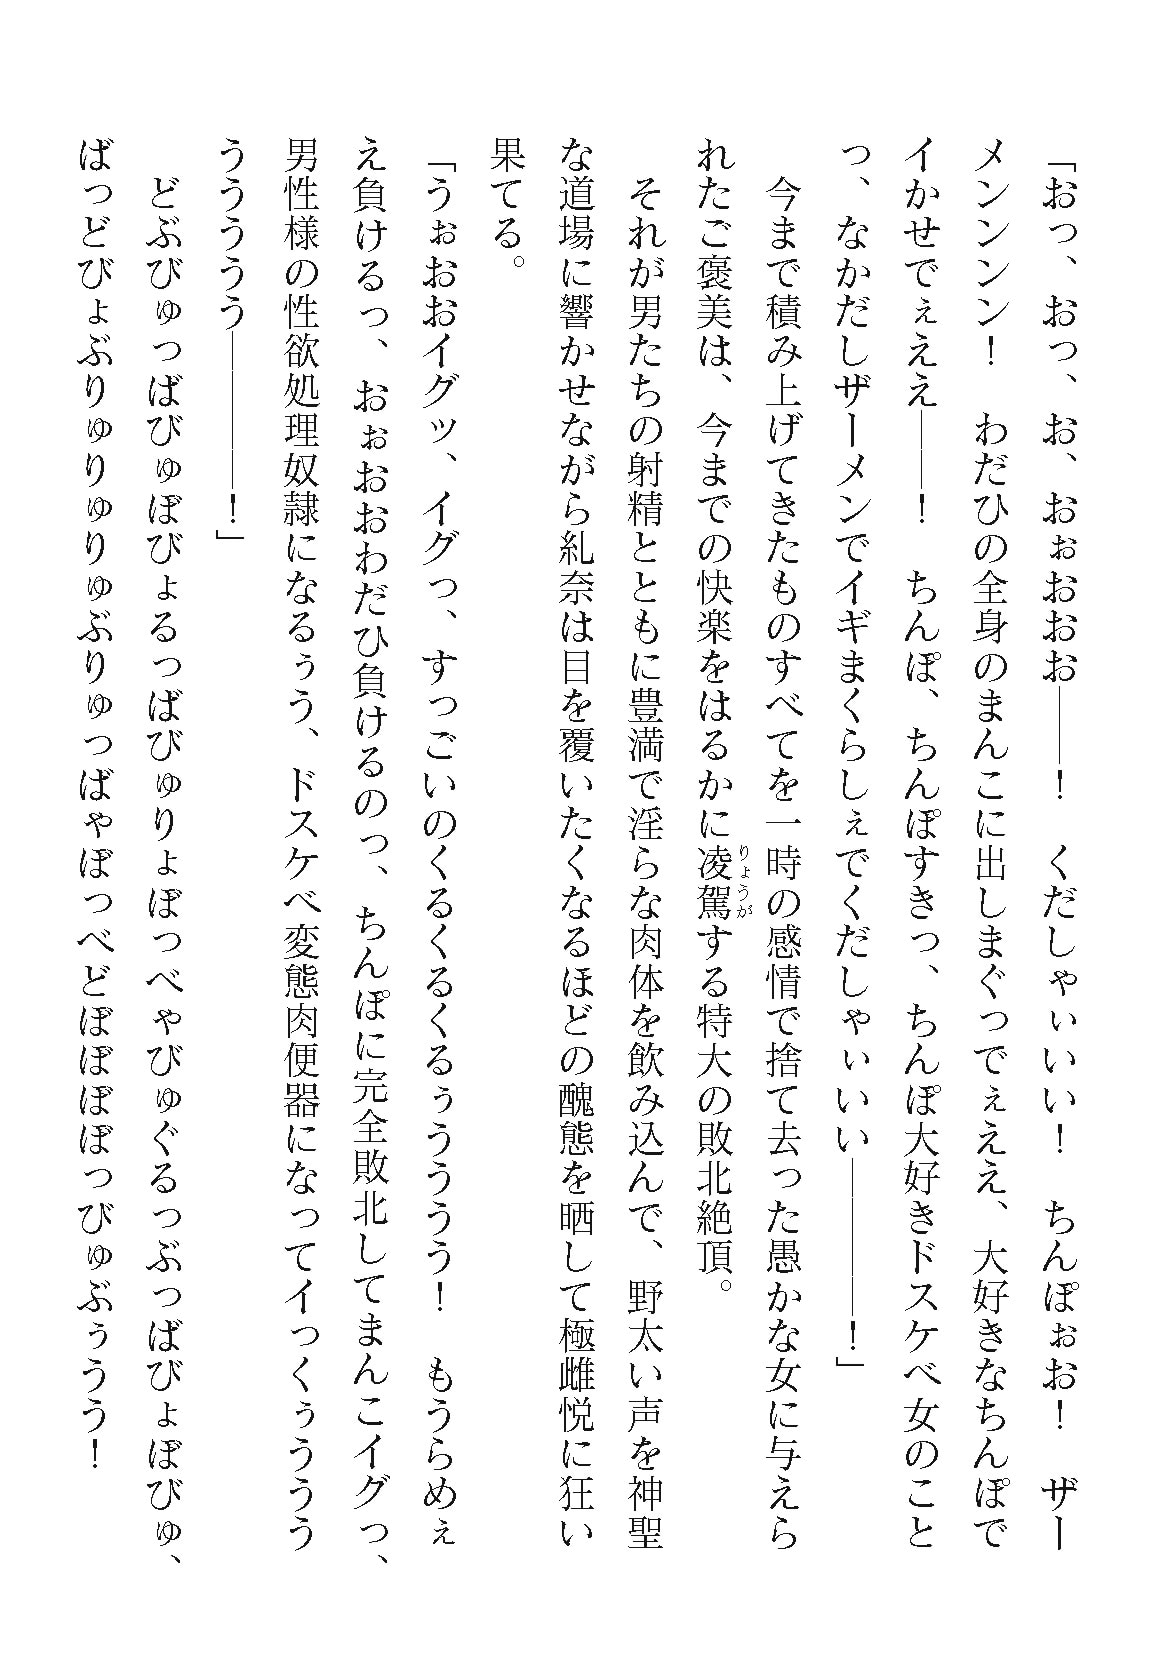 「おっ、おっ、お、おぉおおお――！　くだしゃぃい！　ちんぽぉお！　ザー
メンンンン！　わだひの全身のまんこに出しまぐっでぇええ、大好きなちんぽで
イかせでぇええ――！　ちんぽ、ちんぽすきっ、ちんぽ大好きドスケベ女のこと
っ、なかだしザーメンでイギまくらしぇでくだしゃぃいい――――！」
　今まで積み上げてきたものすべてを一時の感情で捨て去った愚かな女に与えら
れたご褒美は、今までの快楽をはるかに凌駕りょうがする特大の敗北絶頂。
　それが男たちの射精とともに豊満で淫らな肉体を飲み込んで、野太い声を神聖
な道場に響かせながら糺奈は目を覆いたくなるほどの醜態を晒して極雌悦に狂い
果てる。
「うぉおおイグッ、イグっ、すっごいのくるくるくるぅうううう！　もうらめぇ
え負けるっ、おぉおおわだひ負けるのっ、ちんぽに完全敗北してまんこイグっ、
男性様の性欲処理奴隷になるぅう、ドスケベ変態肉便器になってイっくぅううう
ううううう――――！」
　どぶびゅっばびゅぼびょるっばびゅりょぼっべゃびゅぐるっぶっばびょぼびゅ、
ばっどびょぶりゅりゅりゅぶりゅっばゃぼっべどぼぼぼぼっびゅぶぅうう！